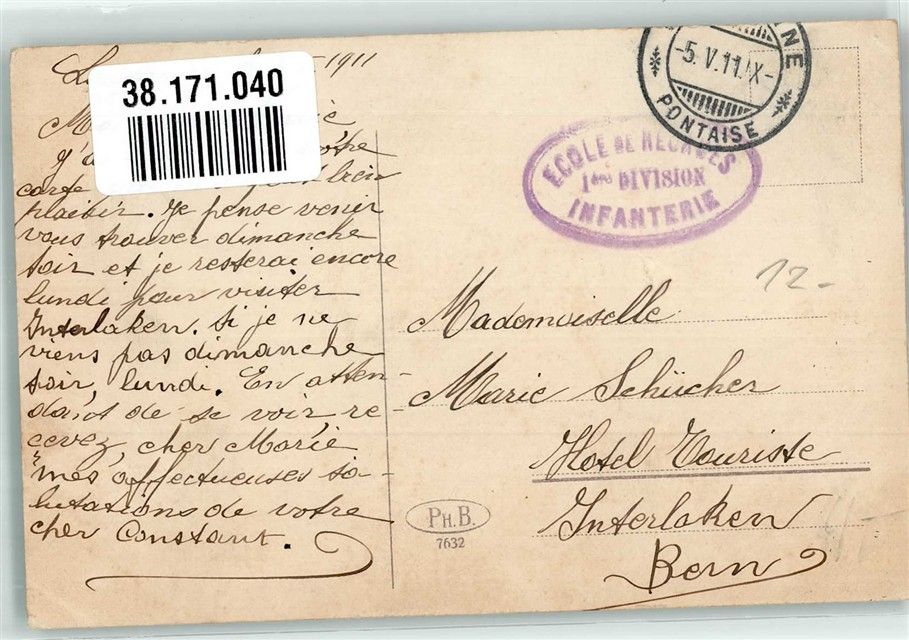 1911
38.171.040
votre
carte bien
plaisir. Je pense venir
vous trouver dimanche
soir et je resterai encore
lundi pour visiter
Interlaken. Si je ne
viens pas dimanche
soir, lundi. En atten-
dant de se voir re-
cevez, cher Marie
mes affectueuses sa-
lutations de votre
cher Constant.
5.V.11.X-
PONTAISE
ECOLE DE RECRUES
1ère DIVISION
INFANTERIE
12.-
Mademoiselle
Marie Schücher
Hotel Touriste
Interlaken
Bern
PH.B.
7632